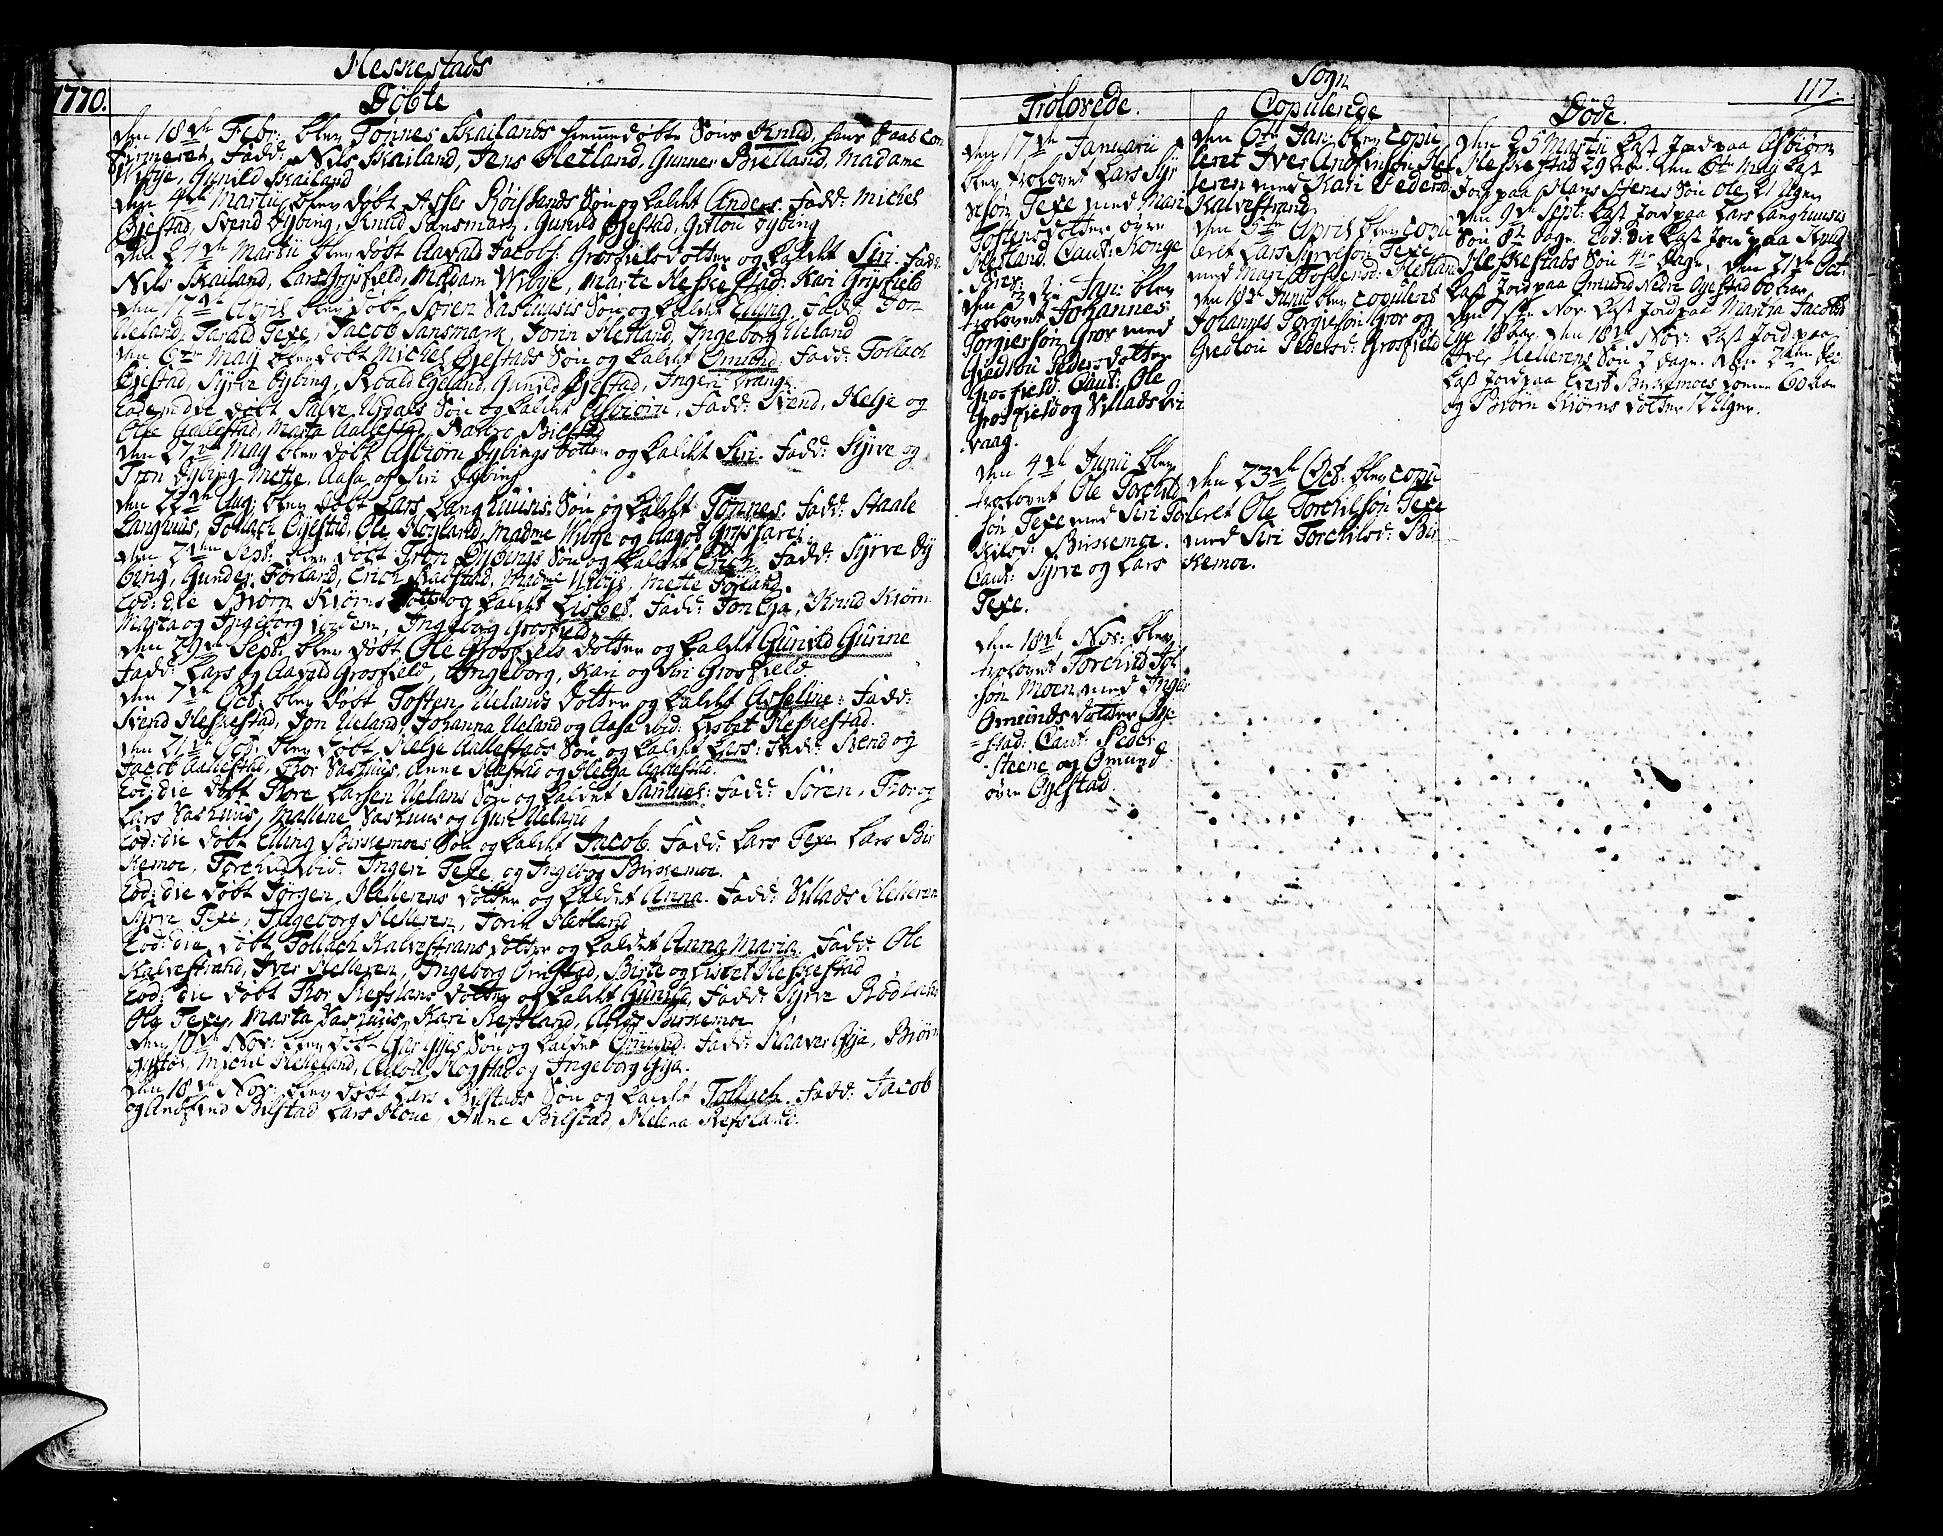 Heskestads
1770.
Døbte
den 18de Febr: blev Tønnes Skailands hiemmedøbte Søn Knud, hans Daab con
firmeret, Fadd: Nils Skailand, Jens Hetland, Gunner Birkeland, Madame
Wibye, Gunild Skailand
den 4de Martii blev døbt Asses Røislands Søn og kaldet Anders. Fadd: Michel
Gyestad, Svend Dybing, Knud Sandsmark, Gunild Gyestad, Gitlou Dybing
den 24de Martii blev døbt Aavald Jacobs: Grosfiels dotter og kaldet Siri. Fadd:
Nils Skailand, Lars Grosfield, Madam Wibye, Marte Heskestad, Kari Grosfield
den 17de April blev døbt Søren Vashuusis Søn og kaldet Elling. Fadd: Jon
Ueland, Tarald Texe, Jacob Sansmark, Jorin Hetland, Ingeborg Ueland
den 6te Maij blev døbt Michel Gyestads Søn og kaldet Omund. Fadd: Tollach
Gyestad, Syrve Dybing, Roald Egeland, Gunild Gyestad, Ingeri
Eodem die døbt Salve Urdals Søn og kaldet Asbiørn. Fadd: Svend, Helje og
Ole Aallestad, Marta Aallestad, Barbro Bilstad
den 27de Maij blev døbt Asbiørn Dybings dotter og kaldet Siri. Fadd: Syrve og
Tron Dybing, Mette, Aasa og Siri Dybing
den 22de Aug: blev døbt Lars Langhuusis Søn og kaldet Tønnes. Fadd: Staale
Langhuus, Tollach Gyestad, Ole Hogland, Madme Wibye og Aagot
den 21de Sept. blev døbt Tron Dybings Søn og kaldet Erich. Fadd: Syrve Dy
bing, Gunder Førland, Erich Kadstad, Madme Wibye, Mette Førland.
Eod: die Biørn Kiørns dotter og kaldet Lisbet. Fadd: Jon Eja, Knud Kiørn
Marta og Ingeborg ibidem, Ingeborg Grosfield
den 29de Sept: blev døbt Ole Grosfiels dotter og kaldet Gunild Gurine
Fadd: Lars og Aavald Grosfield, Ingeborg, Kari og Siri Grosfield
den 7de Oct. blev døbt Tosten Uelands dotter og kaldet Asseline: Fadd:
Svend Heskestad, Jon Ueland, Johanna Ueland og Aasa ibid: Lisbet Heskestad.
den 21de Oct: blev døbt Helje Aallestads Søn og kaldet Lars: Fadd: Svend og
Jacob Aallestad, Thor Vashuus, Anne og Helga Aallestad.
Eod: die døbt Thore Larsen Uelans Søn og kaldet Samuel: Fadd: Søren, Thor og
Lars Vashuus, Mallene Vashuus og Guri Ueland
Eod: die døbt Elling Birkemoes Søn og kaldet Jacob. Fadd: Lars Texe, Lars Bir
kemoe, Torchild ibid. Ingeri Texe og Ingeborg Birkemoe.
Eod: die døbt Jørgen Hellerens dotter og kaldet Anna. Fadd: Villads Helleren
Syrve Texe, Ingeborg Helleren, Jorin Hetland
Eod: die døbt Tollach Kalvestrans dotter og kaldet Anna Maria. Fadd: Ole
Kalvestrand, Iver Helleren, Ingeborg Omstad, Birte og Lisbet Heskestad
Eod: die døbt Thor Refslans dotter og kaldet Gunild, Fadd: Syrve
Ole Texe, Marta Vashuus, Kari Refsland, Birkemoe
den 10de Nov: blev døbt Gyes Søn og kaldet Omund. Fadd: Haaver Gya, Biørn
Michel Helleland, Hogstad og Ingeborg Gya.
den 18de Nov: blev døbt Lars Bilstads Søn og kaldet Tollach. Fadd: Jacob
og Andfind Bilstad, Lars Hove, Anne Bilstad, Helena Refsland.
Sogn
117.
Trolovede.
den 17de Januarii
blev trolovet Lars Syr
vesøn Texe med Mari
Tostensdotter øvre
Hetland. Caut: Ronge
Syrer:
den 3die Jan: blev
trolovet Johannes
Torgiersøn Gror med
Gudlou Peders dotter
Grosfield. Caut: Ole
Grosfield og Villads Lii
vaag.
den 4de Junii blev
trolovet Ole Torchild
søn Texe med Siri Tor
kilsd: Birkemoe.
Caut: Syrve og Lars
Texe.
den 18de Nov: blev
trolovet Torchild
søn Moen med Inger
Omunds dotter Gye
stad: Caut: Peder
Steene og Omund
øvre Gyestad.
Copulerede
den 6te Jan: blev copu
leret Iver Andersøn Hel
leren med Kari Pedersd
Kalvestrand
den 5te April blev copu
leret Lars Syrvesøn Texe
med Mari Tostensd: Hetland
den 18de Junii blev copuleret
Johannes Torgiersøn Gror og
Gudlou Pedersd: Grosfield
den 23de Oct: blev copu
leret Ole Torchilsøn Texe
med Siri Torchilsd: Bir
kemoe.
Døde.
den 25 Martii kast Jord paa Asbiørn
Heskestad 29 aar. den 6te Maij kast
Jord paa Hans Steenes Søn Ole 21 Uger
den 9de Sept: kast Jord paa Lars Langhuusis
Søn 8te dage. Eod: die kast Jord paa Knud
Heskestads Søn 4re dage, den 21de Oct:
kast Jord paa Omund Nedre Gyestad 60 aar
den 1ste Nov. kast Jord paa Marta Jacobs
Gye 18 aar. den 18de Nov: kast Jord paa
Iver Hellerens Søn 7 dage. den 2den De:
kast Jord paa Evert Birkemoes konne 60 aar
og Biørn Kiørns dotter 12 Uger.